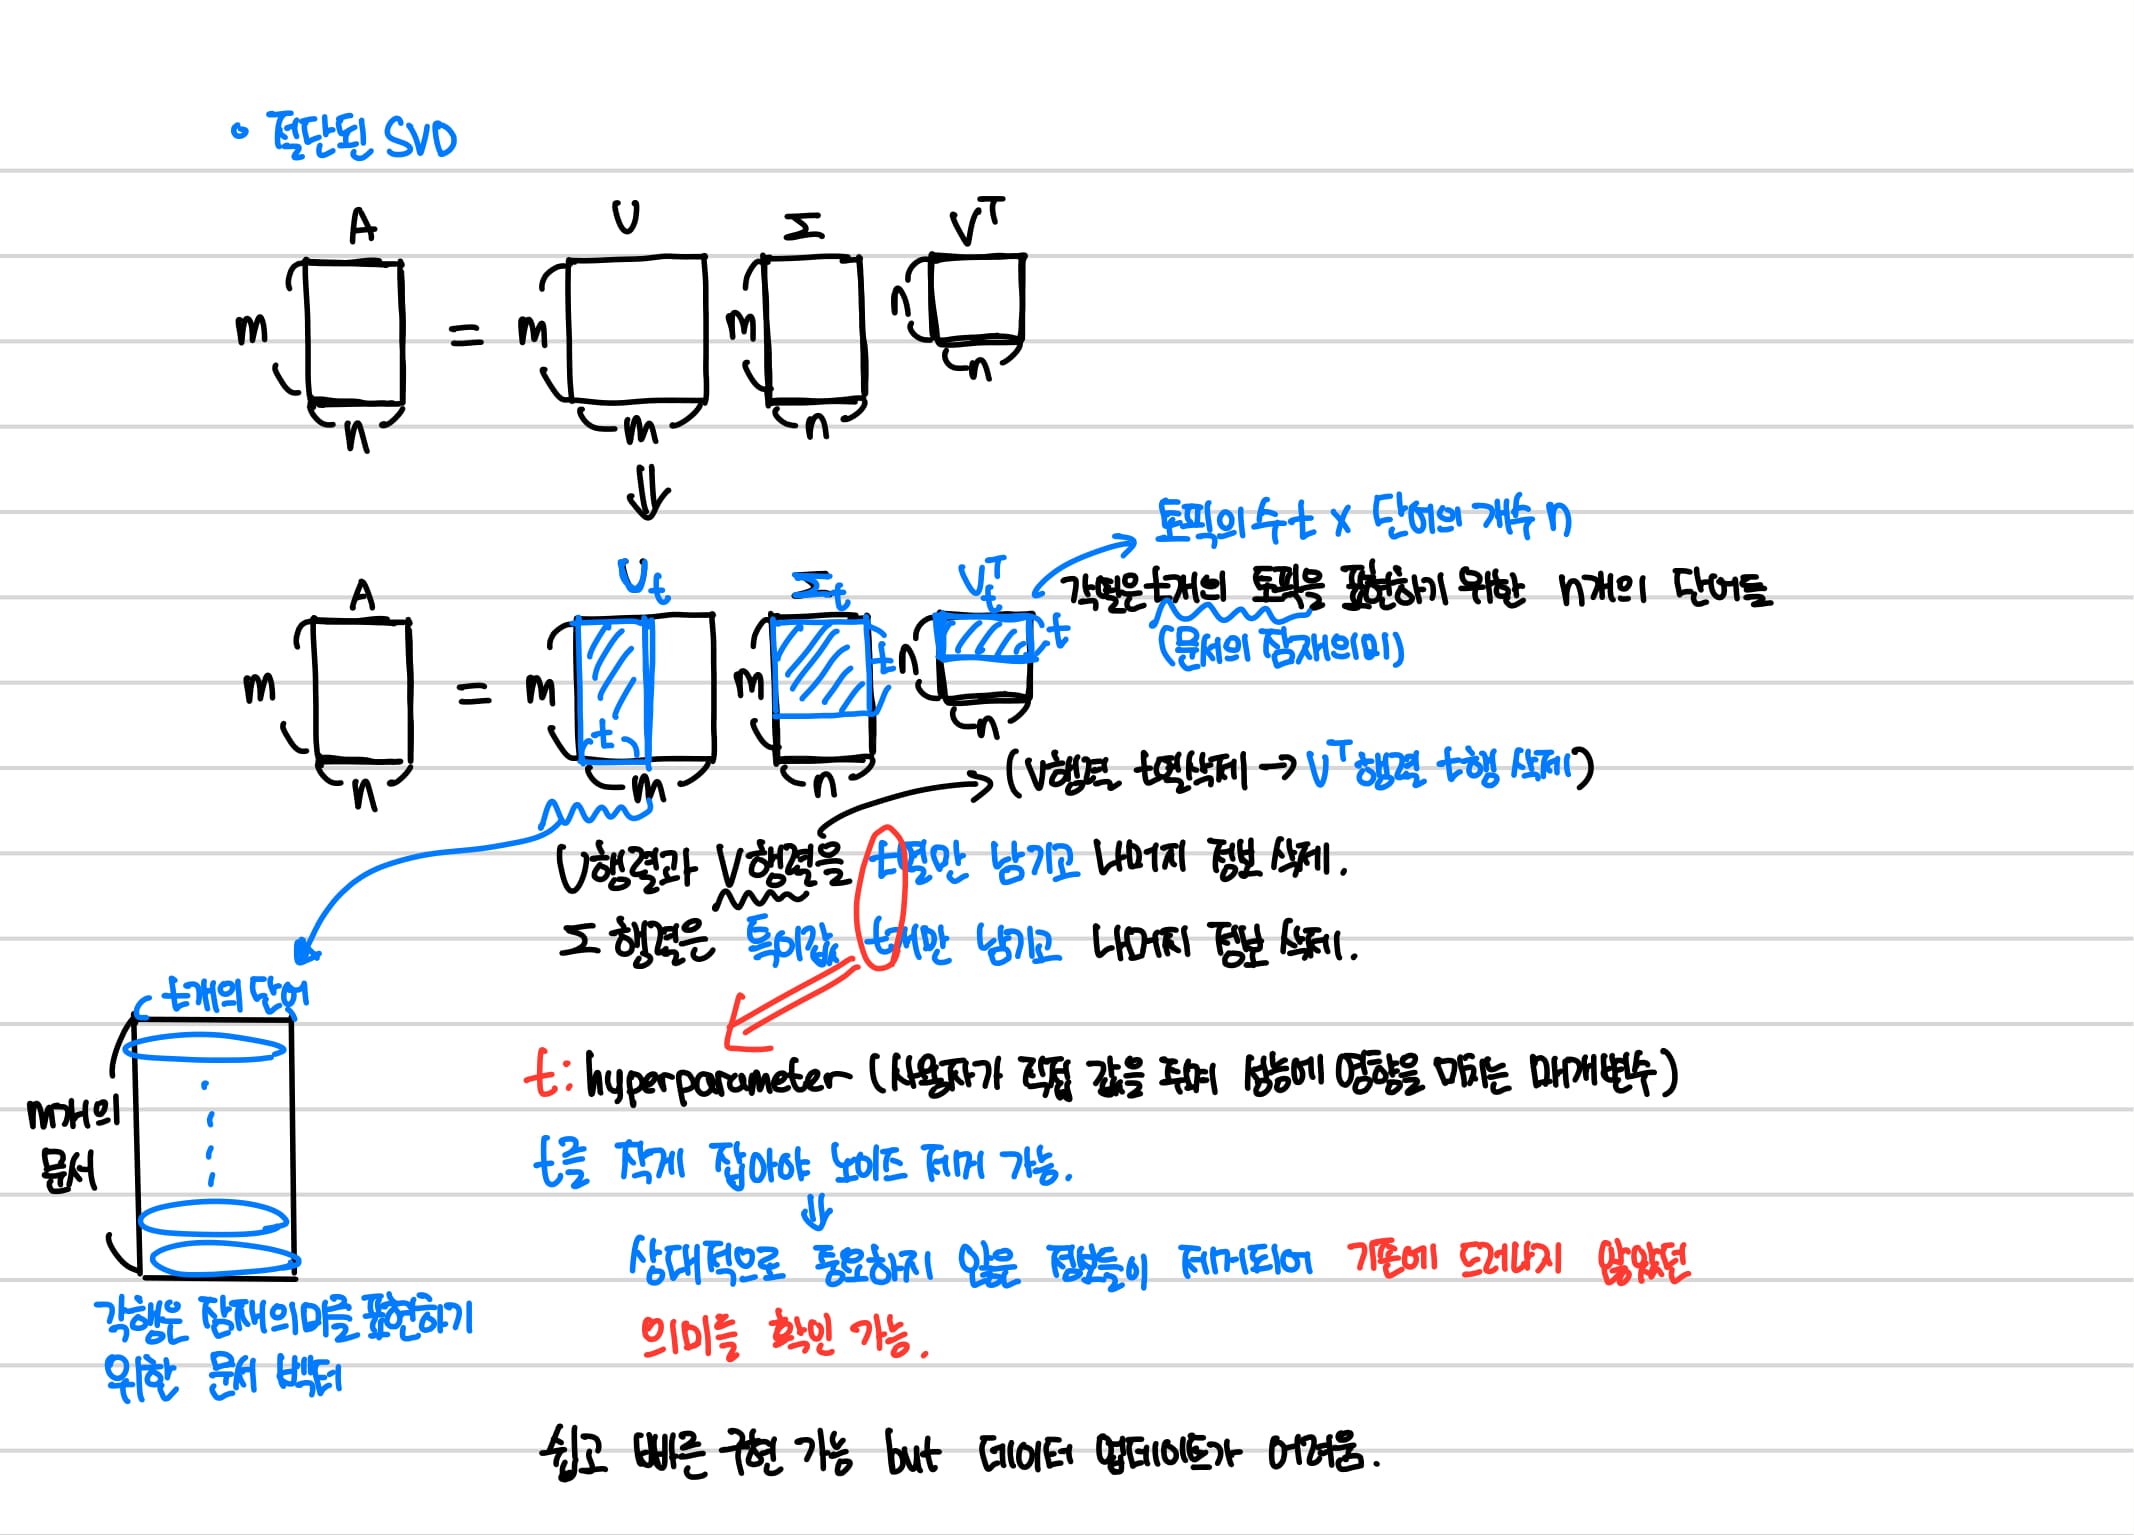 • 절단된 SVD
A U Σ V^T
m n = m m m n n n
⇓
토픽의 수 t x 단어의 개수 n
A U_t Σ_t V_t^T
각 열은 t개의 토픽을 표현하기 위한 n개의 단어들
(문서의 잠재의미)
m n = m t m m t n n t n
(V행렬 t열 삭제 → V^T행렬 t행 삭제)
U행렬과 V행렬을 t열만 남기고 나머지 정보 삭제.
Σ 행렬은 특이값 t개만 남기고 나머지 정보 삭제.
t개의 단어
m개의
문서
각 행은 잠재의미를 표현하기
위한 문서 벡터
t: hyperparameter (사용자가 직접 값을 주며 성능에 영향을 미치는 매개변수)
t를 작게 잡아야 노이즈 제거 가능.
⇓
상대적으로 중요하지 않은 정보들이 제거되어 기존에 드러나지 않았던
의미를 확인 가능.
쉽고 빠른 구현 가능 but 데이터 업데이트가 어려움.